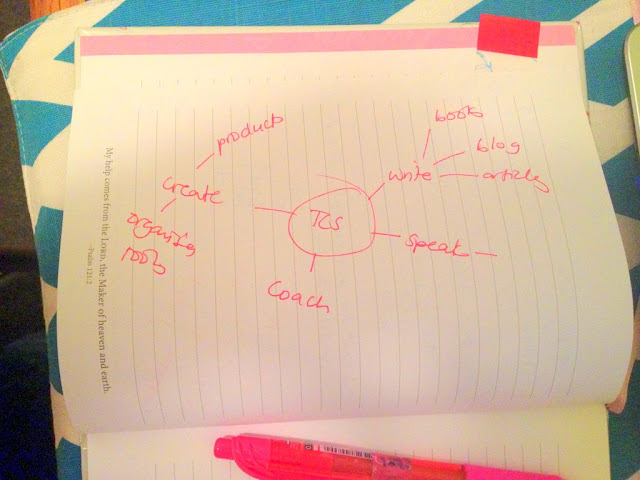 My help comes from the LORD, the Maker of heaven and earth.
-Psalm 121:2
products
create
tools
TCS
write
books
blog
articles
speak
coach